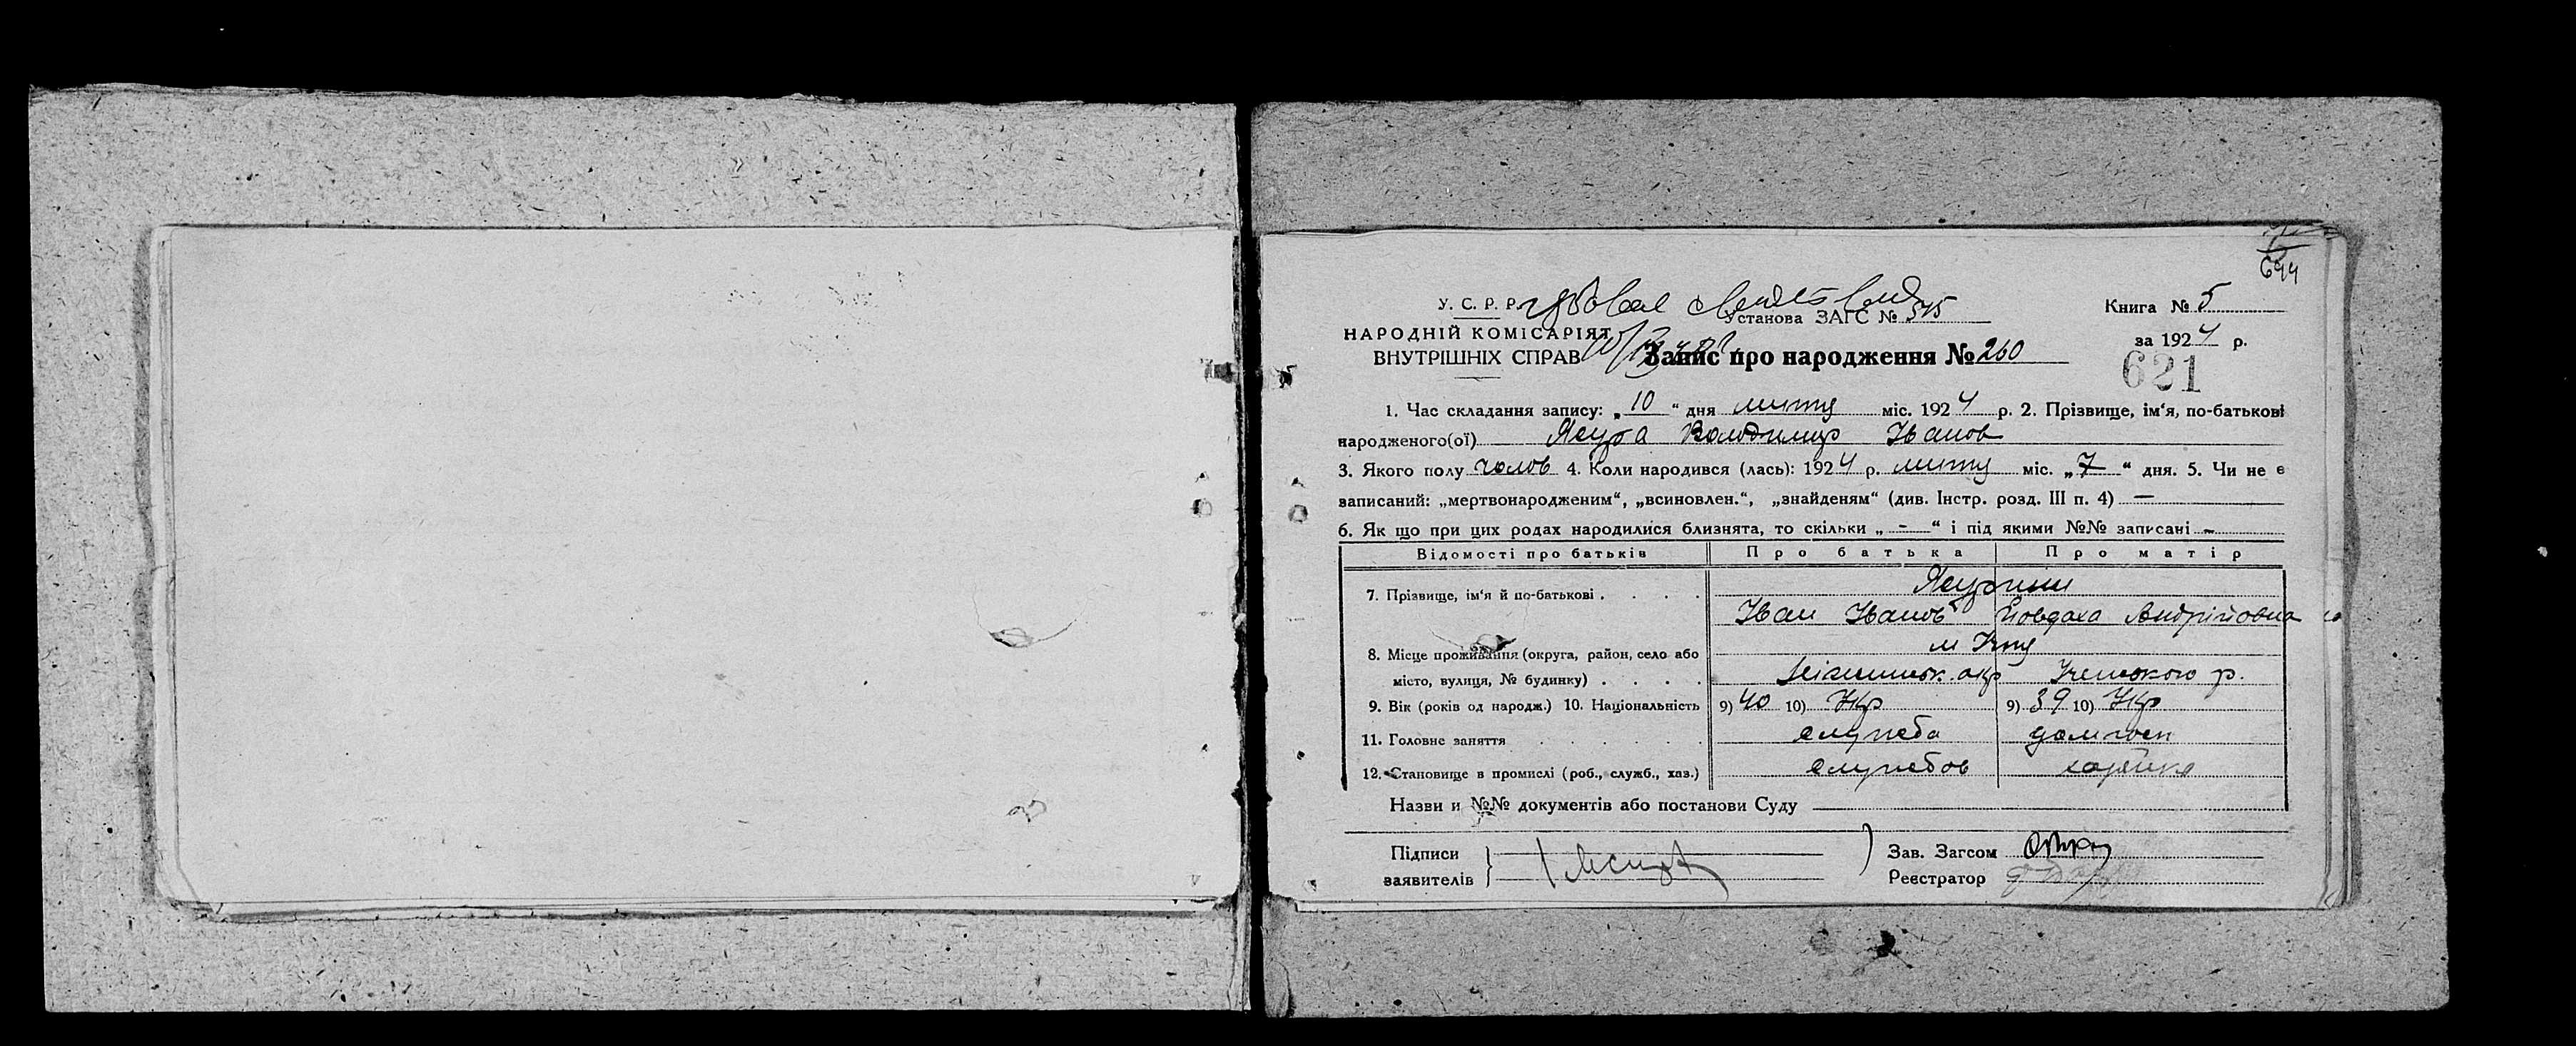 694
У. С. Р. Р.
Установа ЗАГС № 345
Книга № 5
НАРОДНІЙ КОМІСАРІЯТ
ВНУТРІШНІХ СПРАВ
Запис про народження № 260
за 1924 р.
621
1. Час складання запису: „10“ дня міс. 1924 р. 2. Прізвище, ім‘я, по-батькові
народженого(ої) Ясута Володимир Іванов
3. Якого полу чолов 4. Коли народився (лась): 1924 р. міс. „7“ дня. 5. Чи не є
записаний: „мертвонародженим“, „всиновлен.“, „знайденям“ (див. Інстр. розд. III п. 4) —
6. Як що при цих родах народилися близнята, то скільки „-“ і під якими №№ записані -
Відомості про батьків Про батька Про матір
7. Прізвище, ім‘я й по-батькові
Іван Іванов Андрійовна
8. Місце проживання (округа, район, село або
м Ічня
місто, вулиця, № будинку)
окр Ічнського р.
9. Вік (років од народж.) 10. Національність 9) 40 10) Укр 9) 39 10) Укр
11. Головне заняття служба
12. Становище в промислі (роб., служб., хаз.) службов хазяйка
Назви и №№ документів або постанови Суду
Підписи
заявителів
Зав. Загсом
Реєстратор